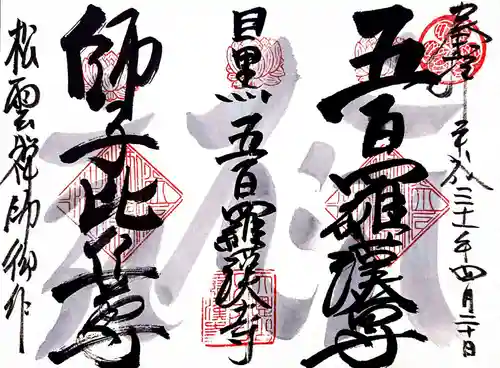 奉拝 平成三十一年四月二十日
五百羅漢尊
目黒 五百羅漢寺
師子比丘尊
松雲禅師御作